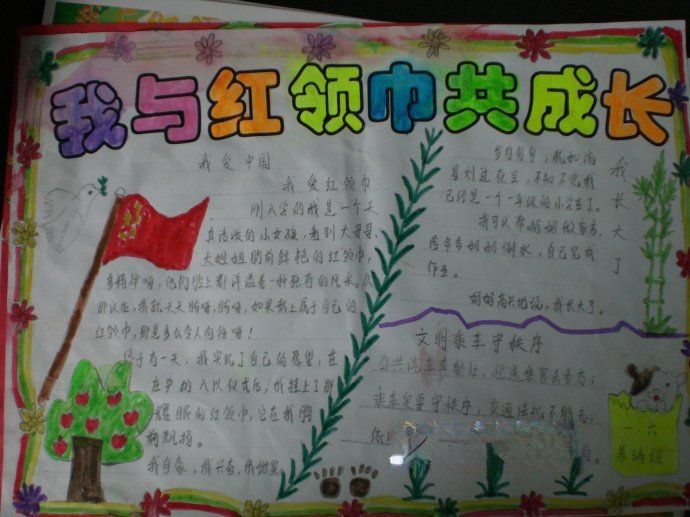 我与红领巾共成长
我爱中国
我爱红领巾
刚入学的我是一个天
真活泼的小女孩，看到大哥哥
大姐姐胸前鲜艳的红领巾，
多精神呀，他们脸上都洋溢着一种独有的风采。从
那以后，我就天天盼呀，盼呀，如果我上属于自己的
红领巾，那是多么令人向往呀！
终于有一天，我实现了自己的愿望，在
庄严的入队仪式后，我挂上了那
耀眼的红领巾，它在我胸
前飘扬。
我自豪，我兴奋，我甜蜜
我长大了
岁月匆匆，我如流
星划过夜里，不知不觉我
已经是一个一年级的小学生了。
我可以帮妈妈做家务，
给爷爷奶奶倒水，自己完成
作业。
妈妈高兴地说，我长大了。
文明乘车守秩序
公共汽车真
乘客去各方；
乘车定要守秩序，交通法规不能忘；
依
一·六
苏